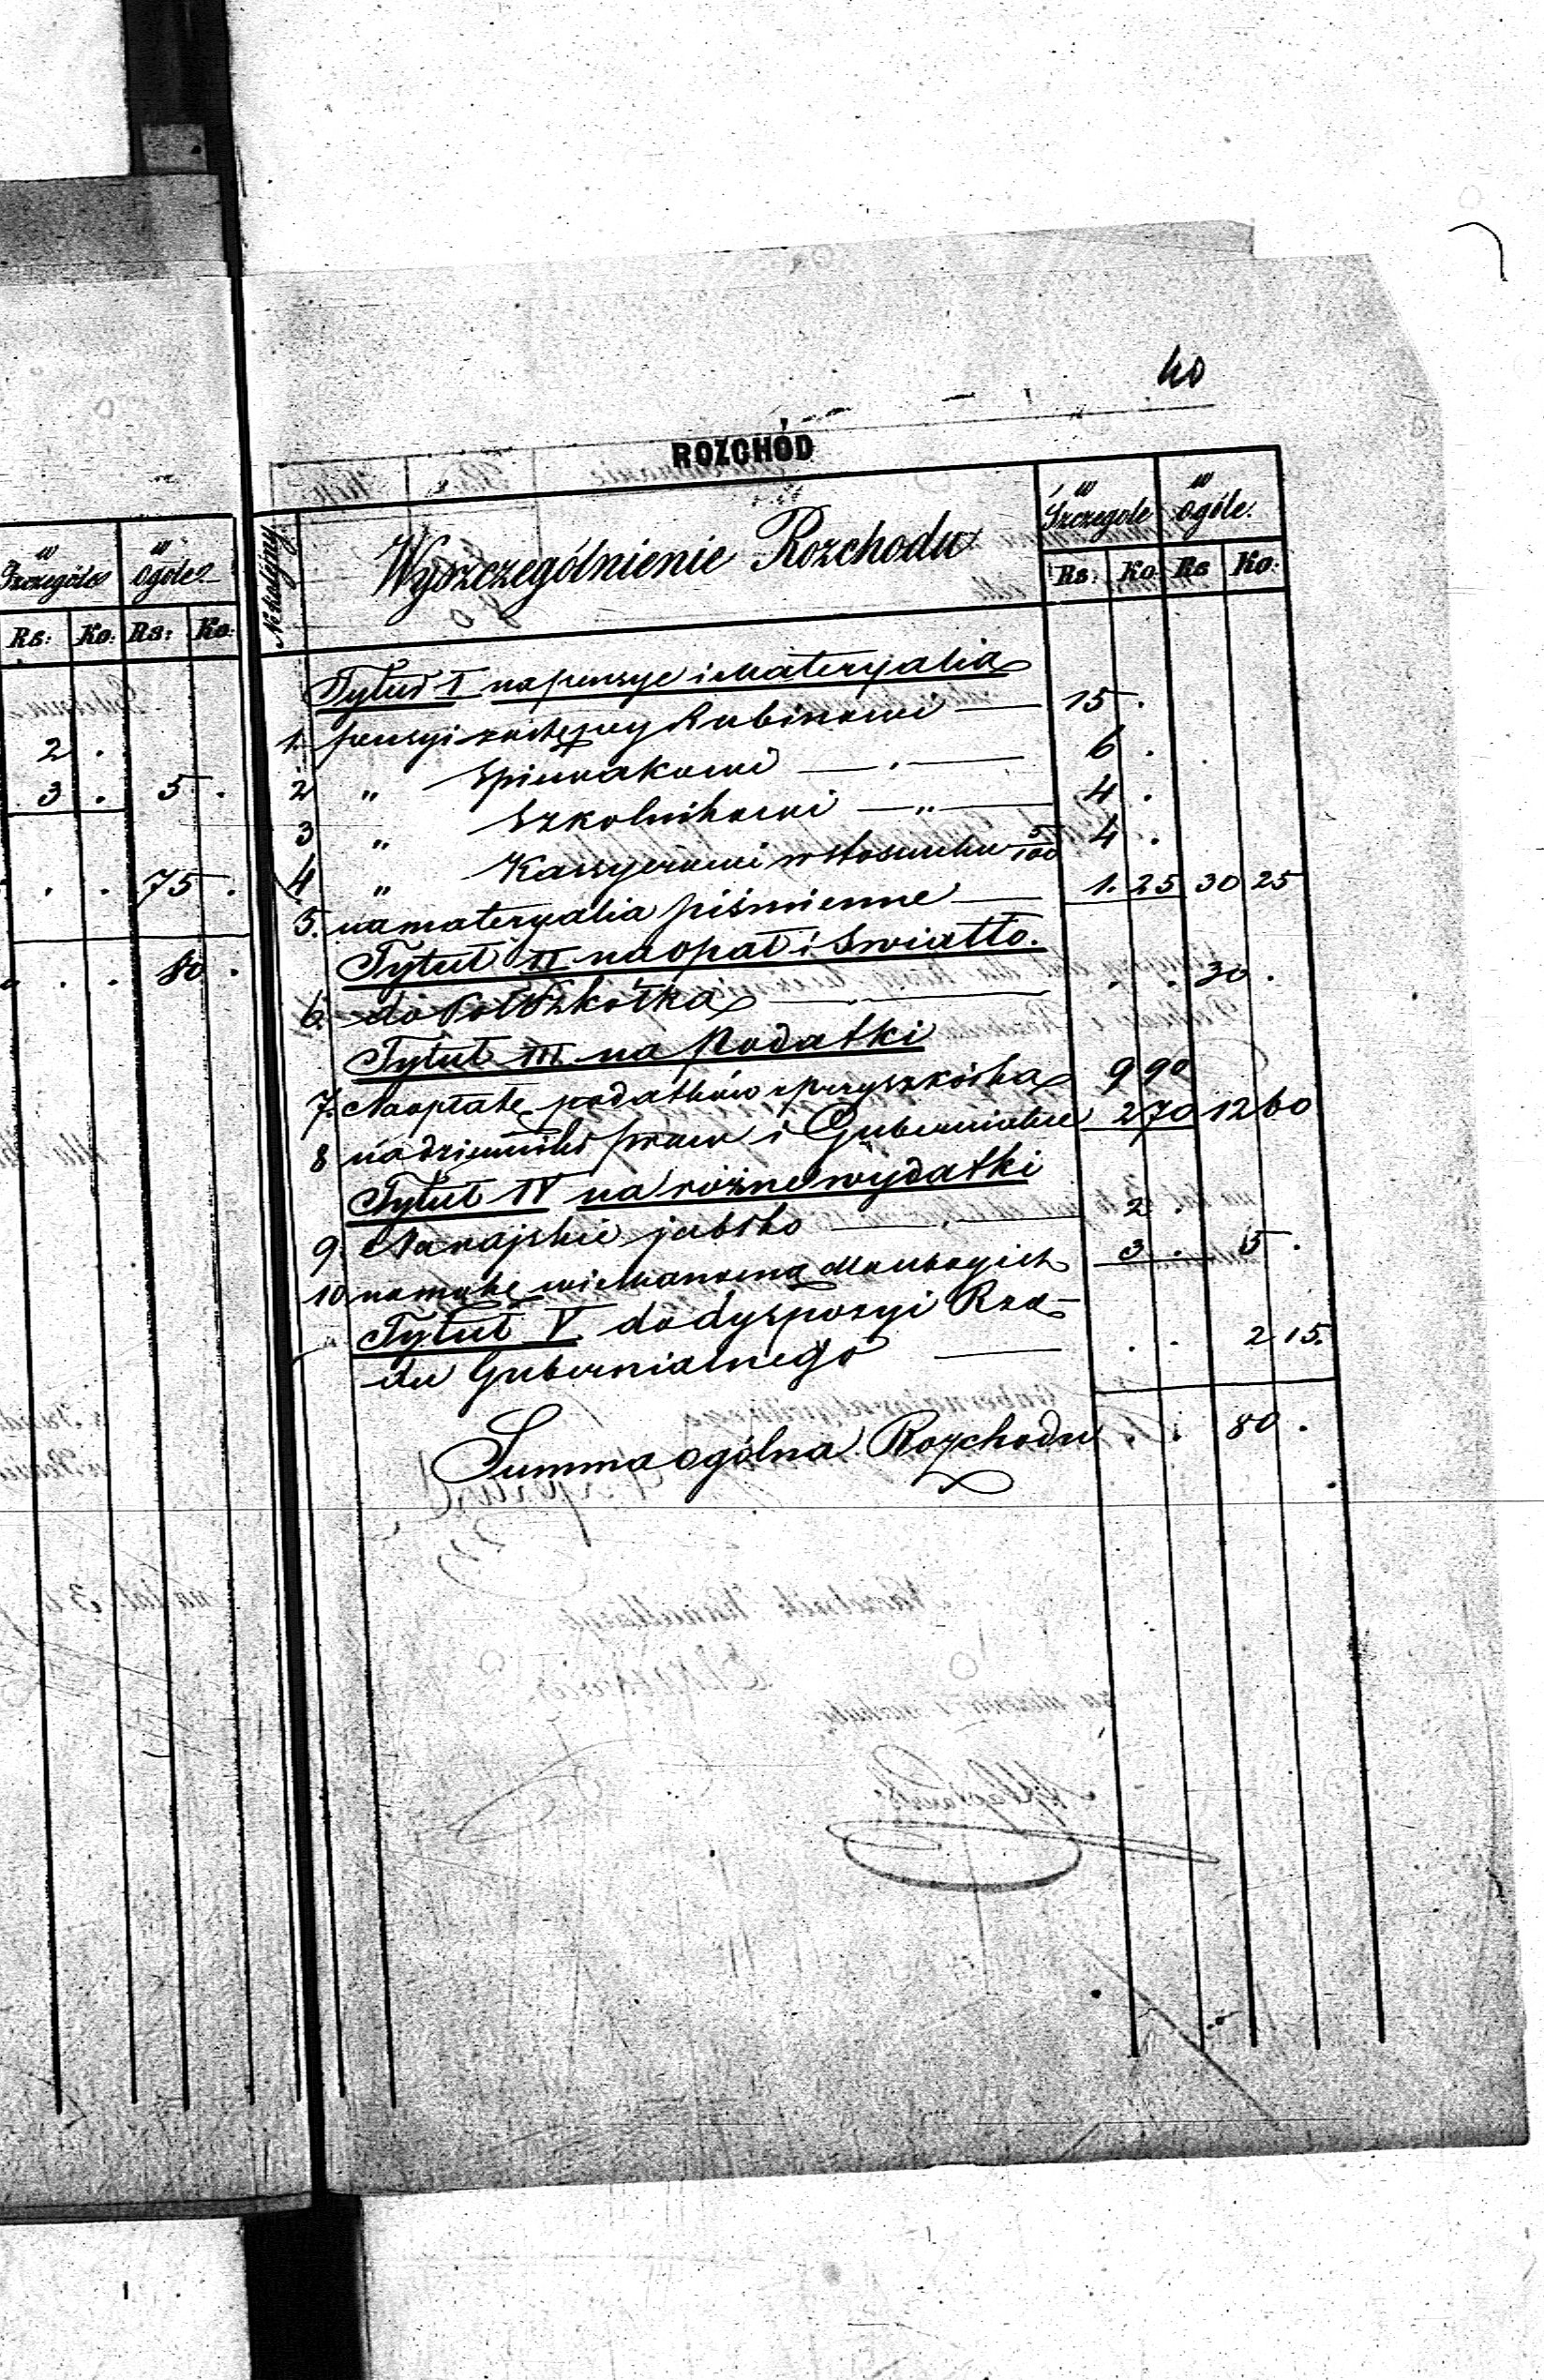 40
ROZCHÓD
w Szczególe
w Ogóle
Rs: Ko: Rs: Ko:
2 .
3 . 5 .
. . 75 .
. . 80 .
№ kolejny
Wyszczególnienie Rozchodu
w Szczególe
w Ogóle.
Rs: Ko Rs Ko:
Tytuł I na pensye i Materyalia
1. pensyi zastępcy Rabinowi 15 .
2 " Spiewakowi 6 .
3 " Szkolnikowi 4 .
4 " Kassyerowi w stosunku 5/100 4 .
5. na materyalia piśmienne 1. 25 30 25
Tytuł II na opał i Swiatło.
6. do . . 30 .
Tytuł III na Podatki
7. Na opłatę podatków 9 90
8 na dzienniki praw i Gubernialne 2 70 12 60
Tytuł IV na różne wydatki
9. Na rajskie jabłko 2 .
10 na mąkę wielkanocną dla ubogich 3 . 5 .
Tytuł V do dyspozyi Rzą-
du Gubernialnego . . 2 15.
Summa ogólna Rozchodu . . 80 .